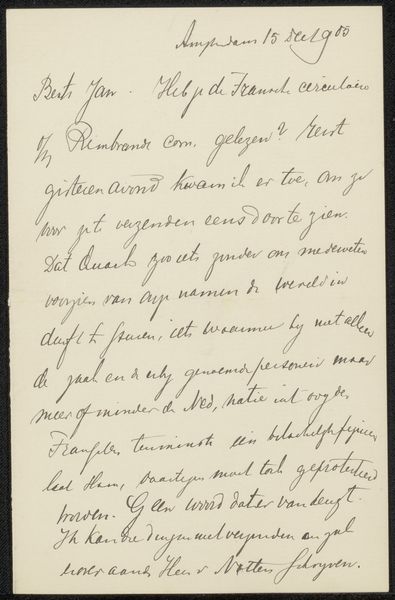 Amsterdam 15 Dec 1905
Beste Jan. Heb je de Fransche circulaire
Rembrandt com. gelezen? Eerst
gisteren avond kwam ik er toe, om ze
voor het verzenden eens door te zien.
Dat Quack zoo iets zonder ons medeweten
voorzien van onze namen de wereld in
durft te sturen, iets waarmee hij niet alleen
de zaak en de erbij genoemde personen maar
meer of minder de Ned. natie in t oog der
Franschen tenminste een belachelijk figuur
laat slaan, daartegen moet toch geprotesteerd
worden. Geen woord dat er van deugt.
Ik kan die dingen niet verzenden en zal
hierover aan de Heer Nolten schrijven.